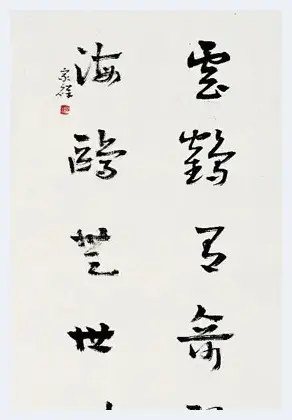 雲鶴有奇
海鷗無世
宗祥